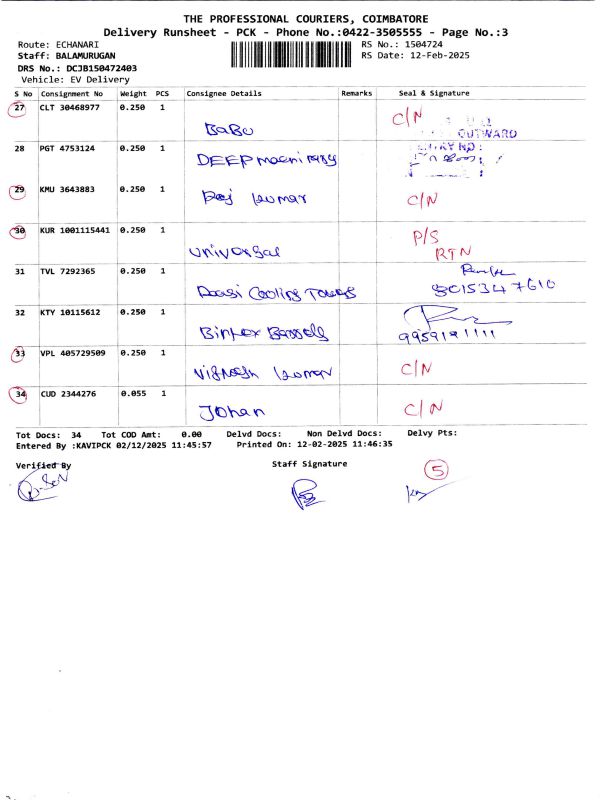 THE PROFESSIONAL COURIERS, COIMBATORE
Delivery Runsheet - PCK - Phone No.:0422-3505555 - Page No.:3
Route: ECHANARI RS No.: 1504724
Staff: BALAMURUGAN RS Date: 12-Feb-2025
DRS No.: DCJB150472403
Vehicle: EV Delivery
S No Consignment No Weight PCS Consignee Details Remarks Seal & Signature
27 CLT 30468977 0.250 1 C/N
BaBu
OUTWARD
28 PGT 4753124 0.250 1 ENTRY NO:
DEEP
29 KMU 3643883 0.250 1 Raj kumar C/N
30 KUR 1001115441 0.250 1 P/S
universal RTN
31 TVL 7292365 0.250 1
Cooling Towers 8015347610
32 KTY 10115612 0.250 1
9959191111
33 VPL 405729509 0.250 1 C/N
Vignesh kumar
34 CUD 2344276 0.055 1 C/N
Johan
Tot Docs: 34 Tot COD Amt: 0.00 Delvd Docs: Non Delvd Docs: Delvy Pts:
Entered By :KAVIPCK 02/12/2025 11:45:57 Printed On: 12-02-2025 11:46:35
Verified By Staff Signature 5